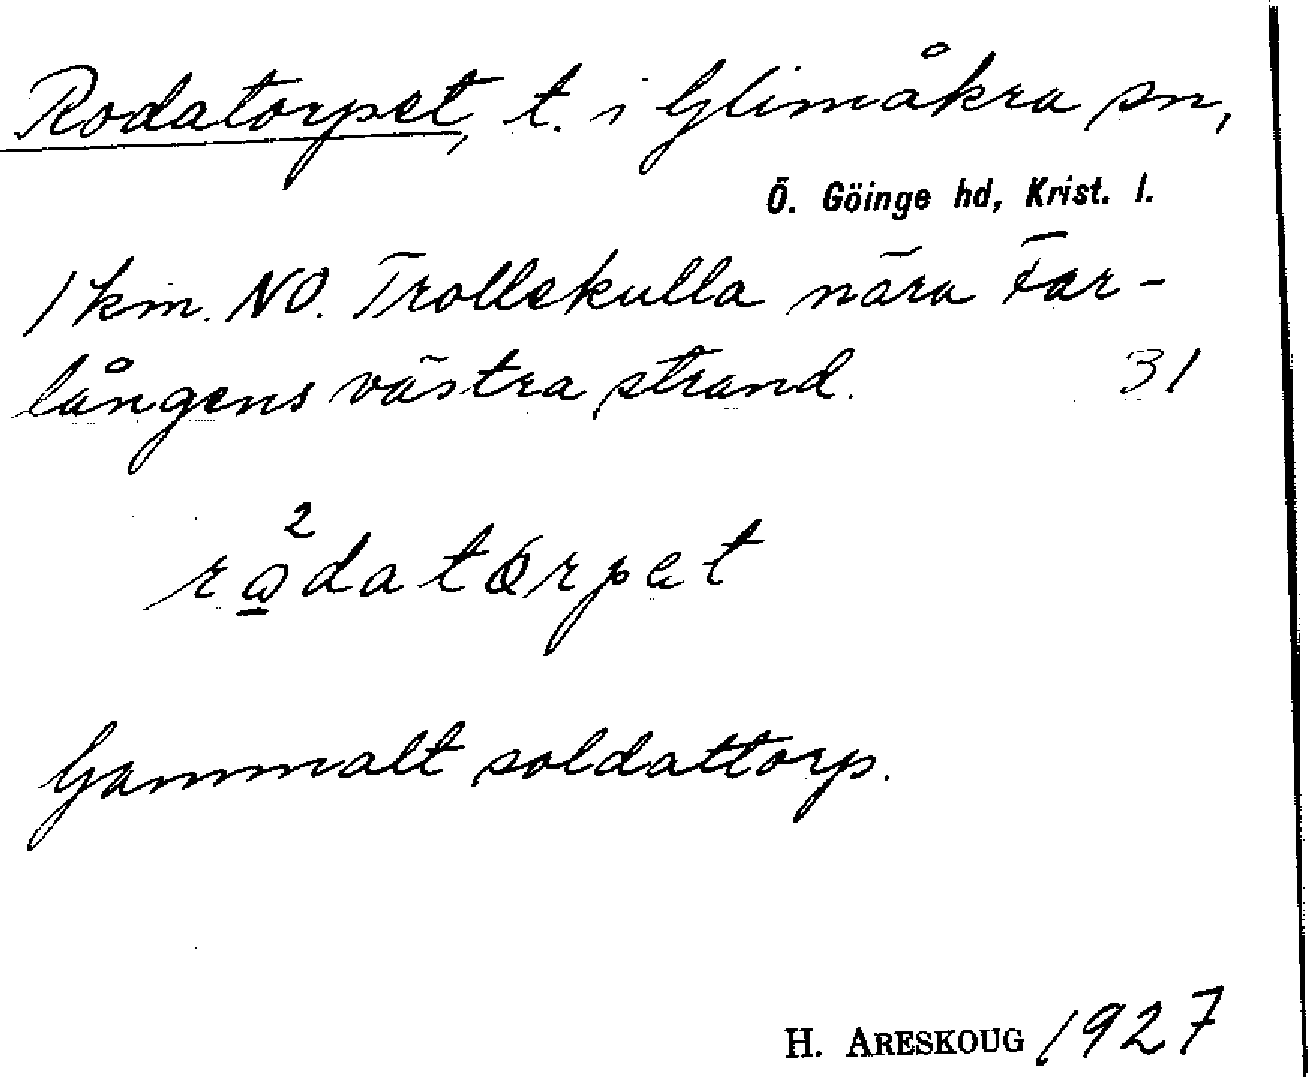 Rodatorpet, t. i Glimåkra sn,
Ö. Göinge hd, Krist. l.
1 km. NO. Trollekulla nära Far-
långens västra strand. 31
Gammalt soldattorp.
H. ARESKOUG 1927